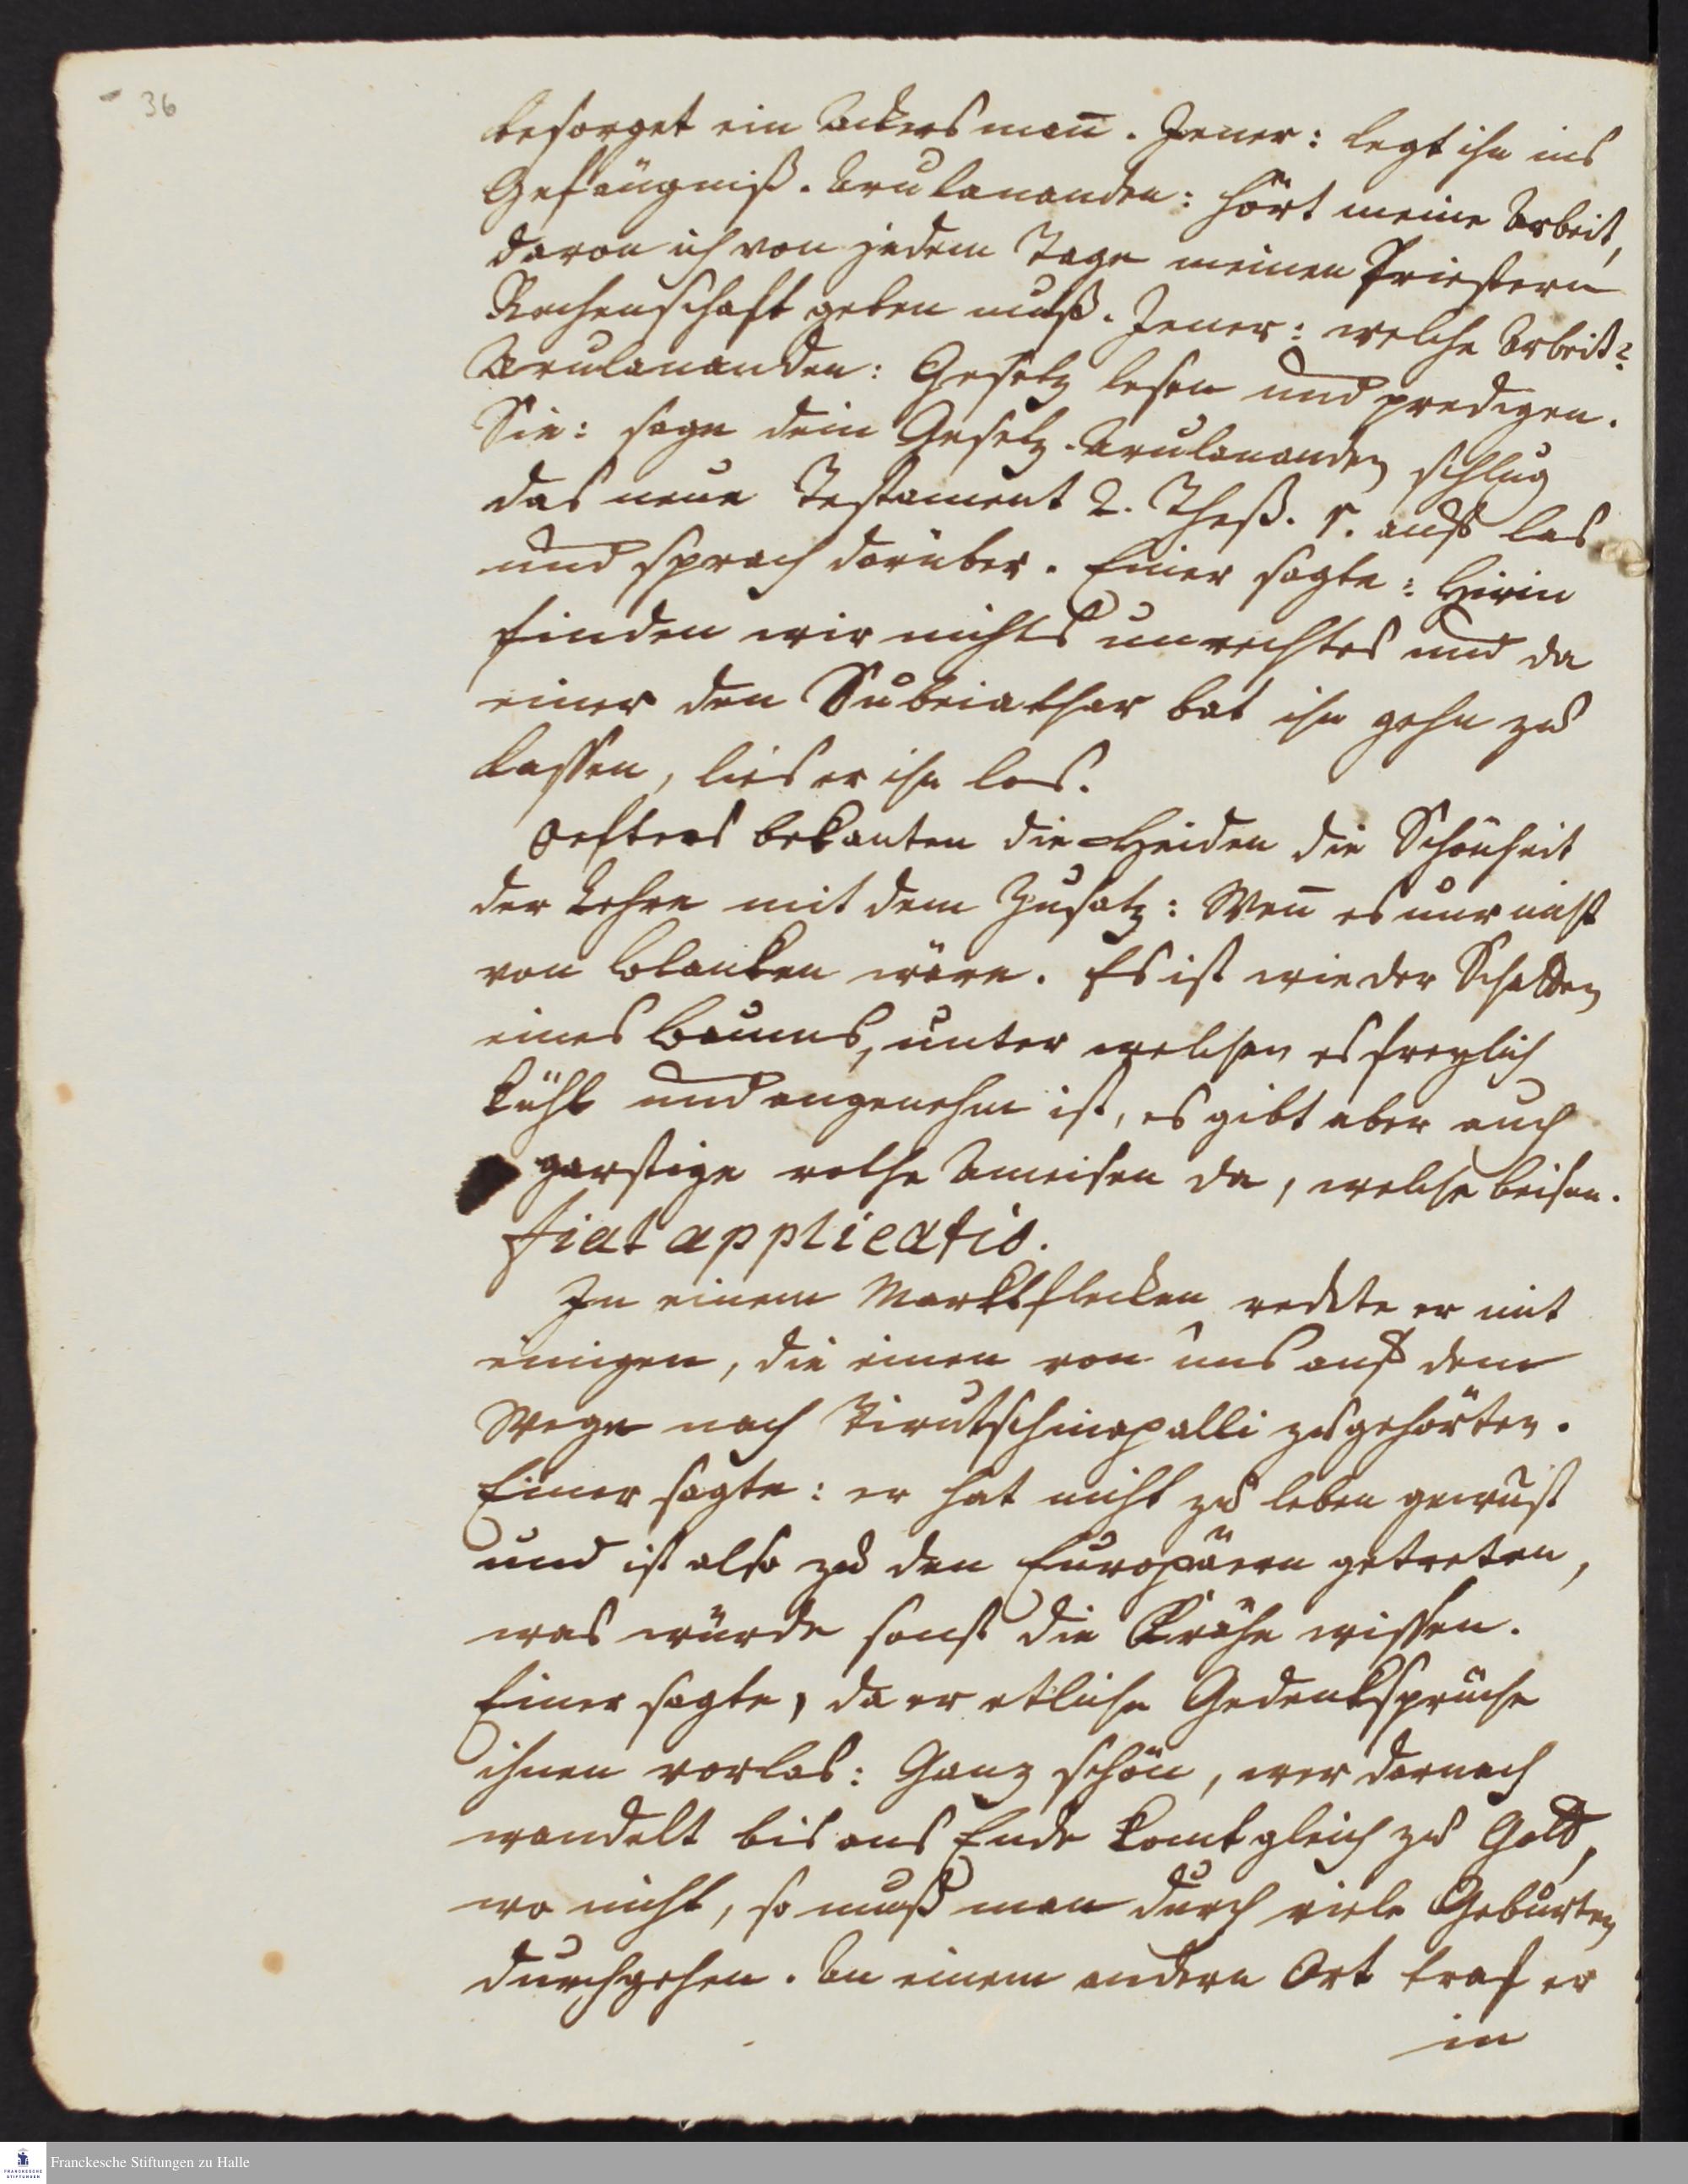 36
besorget ein Ackersmañ. Jener: legt ihn ins
Gefängniß. Arulananden: hört meine Arbeit,
davon ich von jedem Tage meinen Priestern
Rechenschaft geben muß. Jener: welche Arbeit?
Arulananden: Gesetz lesen und predigen.
Sie: sage dein Gesetz. Arulananden schlug
das neue Testament 2. Theß. 1. auf, las
und sprach darüber. Einer sagte: Hirin
finden wir nichts unrechtes und da
einer den Subeiathar bat ihn gehn zu
lassen, lies er ihn los.
Oefters bekanten die Heiden die Schönheit
der Lehre mit dem Zusatz: Weñ es nur nicht
von Blanken wäre. Es ist wie der Schatten
eines Baums, unter welchen es freylich
kühl und angenehm ist, es gibt aber auch
garstige rothe Ameisen da, welche beisen.
fiat applicatio.
In einem Marktflecken redete er mit
einigen, die einen von uns auf dem
Wege nach Tirutschinapalli zugehörten.
Einer sagte: er hat nicht zu leben gewust
und ist also zu den Europäern getreten,
was würde sonst die Krähe wissen.
Einer sagte, da er etliche Gedenksprüche
ihnen vorlas: Ganz schön, wer darnach
wandelt bis ans Ende komt gleich zu Gott,
wo nicht, so muß man durch viele Geburten
durchgehen. An einem andern Ort traf er
in
Franckesche Stiftungen zu Halle